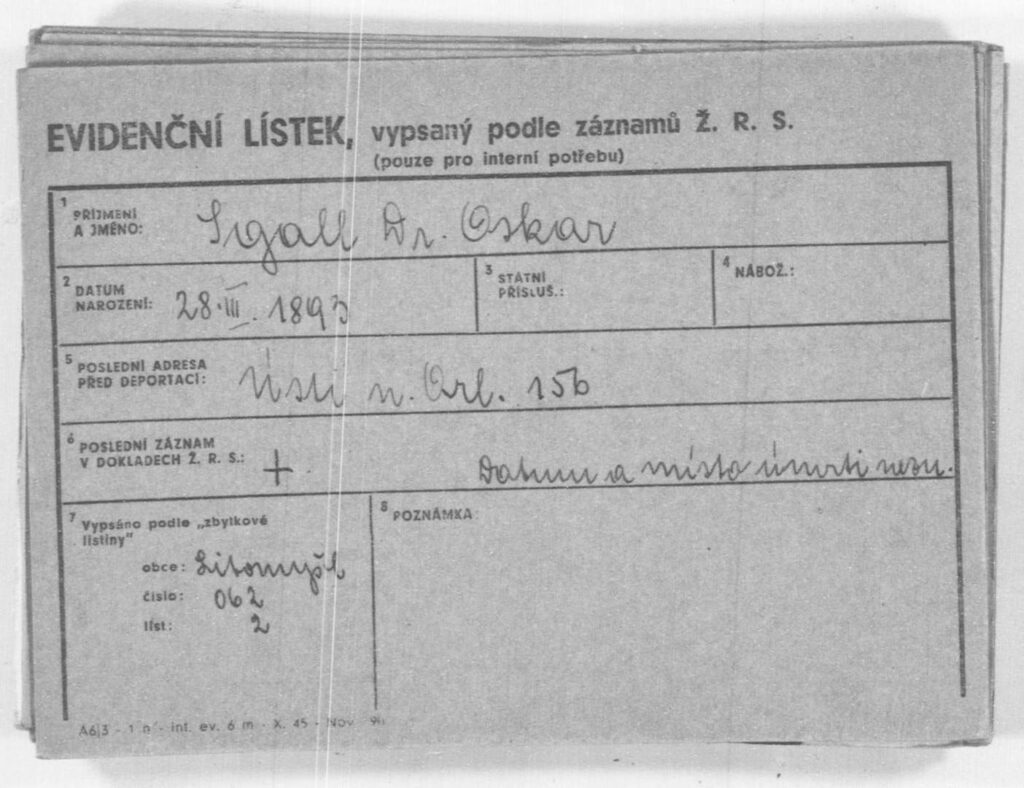 EVIDENČNÍ LÍSTEK, vypsaný podle záznamů Ž. R. S.
(pouze pro interní potřebu)
1 PŘÍJMENÍ
A JMÉNO: Igall Dr. Oskar
2 DATUM
NAROZENÍ: 28.III. 1893
3 STÁTNÍ
PŘÍSLUŠ.:
4 NÁBOŽ.:
5 POSLEDNÍ ADRESA
PŘED DEPORTACÍ: Ústí n. Orl. 156
6 POSLEDNÍ ZÁZNAM
V DOKLADECH Ž. R. S.: + Datum a místo úmrtí nezn.
7 Vypsáno podle „zbytkové
listiny"
obce: Litomyšl
číslo: 062
list: 2
8 POZNÁMKA:
A6|3 - 1 n - int. ev. 6 m - X. 45 - Nov.